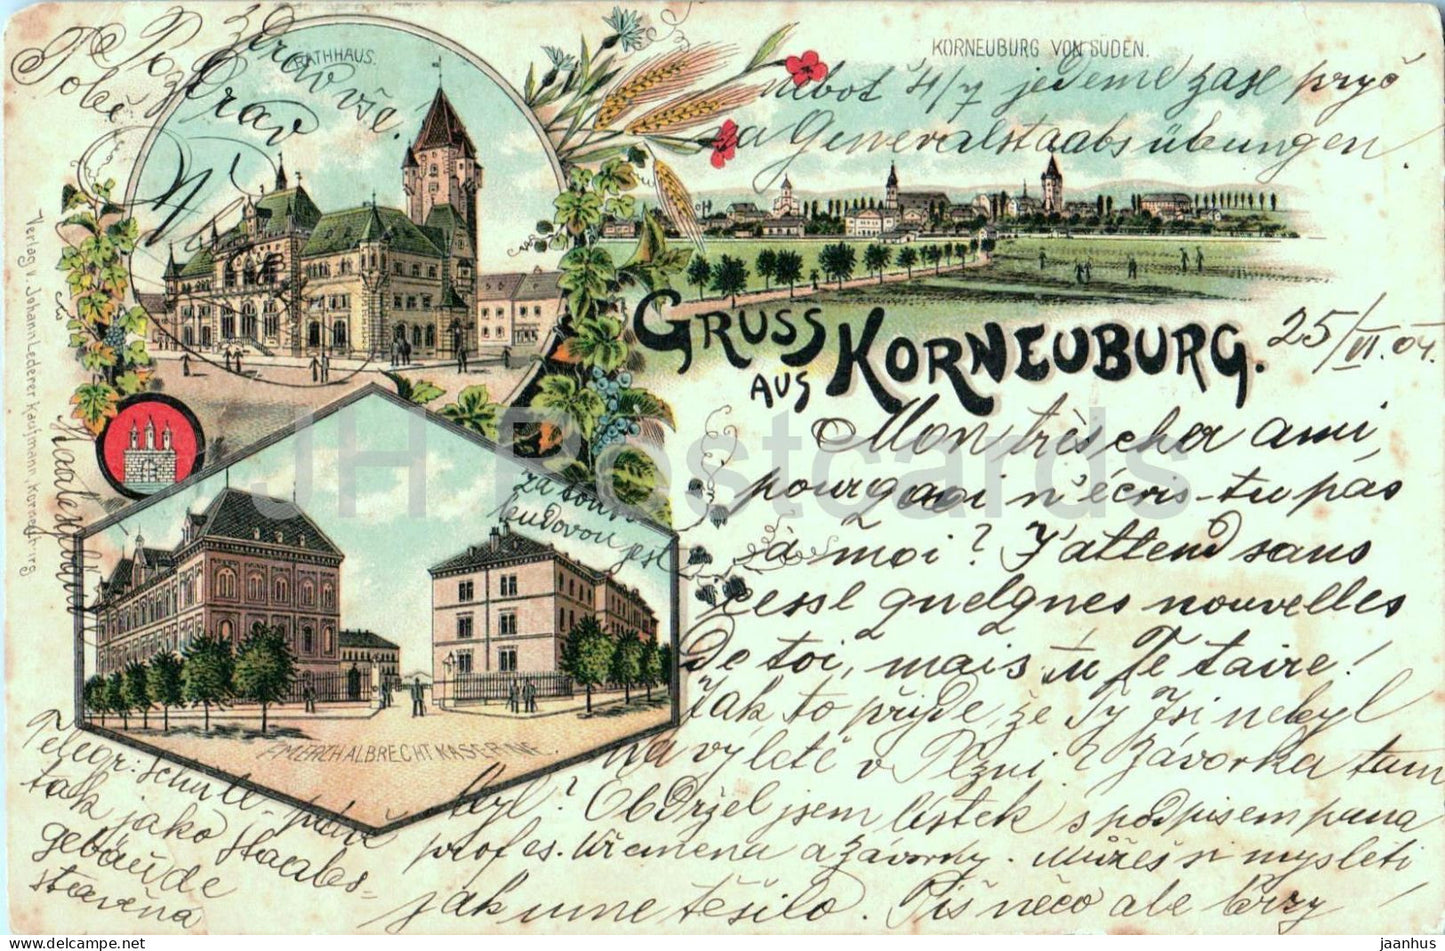 RATHHAUS.
KORNEUBURG VON SÜDEN.
Pozdrav
Tobě
Zdrav vše.
nebot 4/7 jedeme zase pryč
na Generalstaabsübungen.
GRUSS
AUS KORNEUBURG.
25/VI.04.
Mon très cher ami,
pourquoi n'écris-tu pas
à moi? J'attend sans
cesse quelques nouvelles
de toi, mais tu te taire!
Jak to přijde, že Ty jsi nebyl
na výletě v Plzni? Závorka tam
byl? Obdržel jsem lístek s podpisem pana
profes. Křemena a Závorky. Můžeš si mysleti
jak mne těšilo. Piš něco ale brzy!
za touto
budovou jest
EMLERCH ALBRECHT KASERNE.
Telegr. Schule
tak jako Staabs-
gebäude
stavěna
Verlag v. Johann Lederer Kaufmann, Korneuburg
JH Postcards
www.delcampe.net
jaanhus